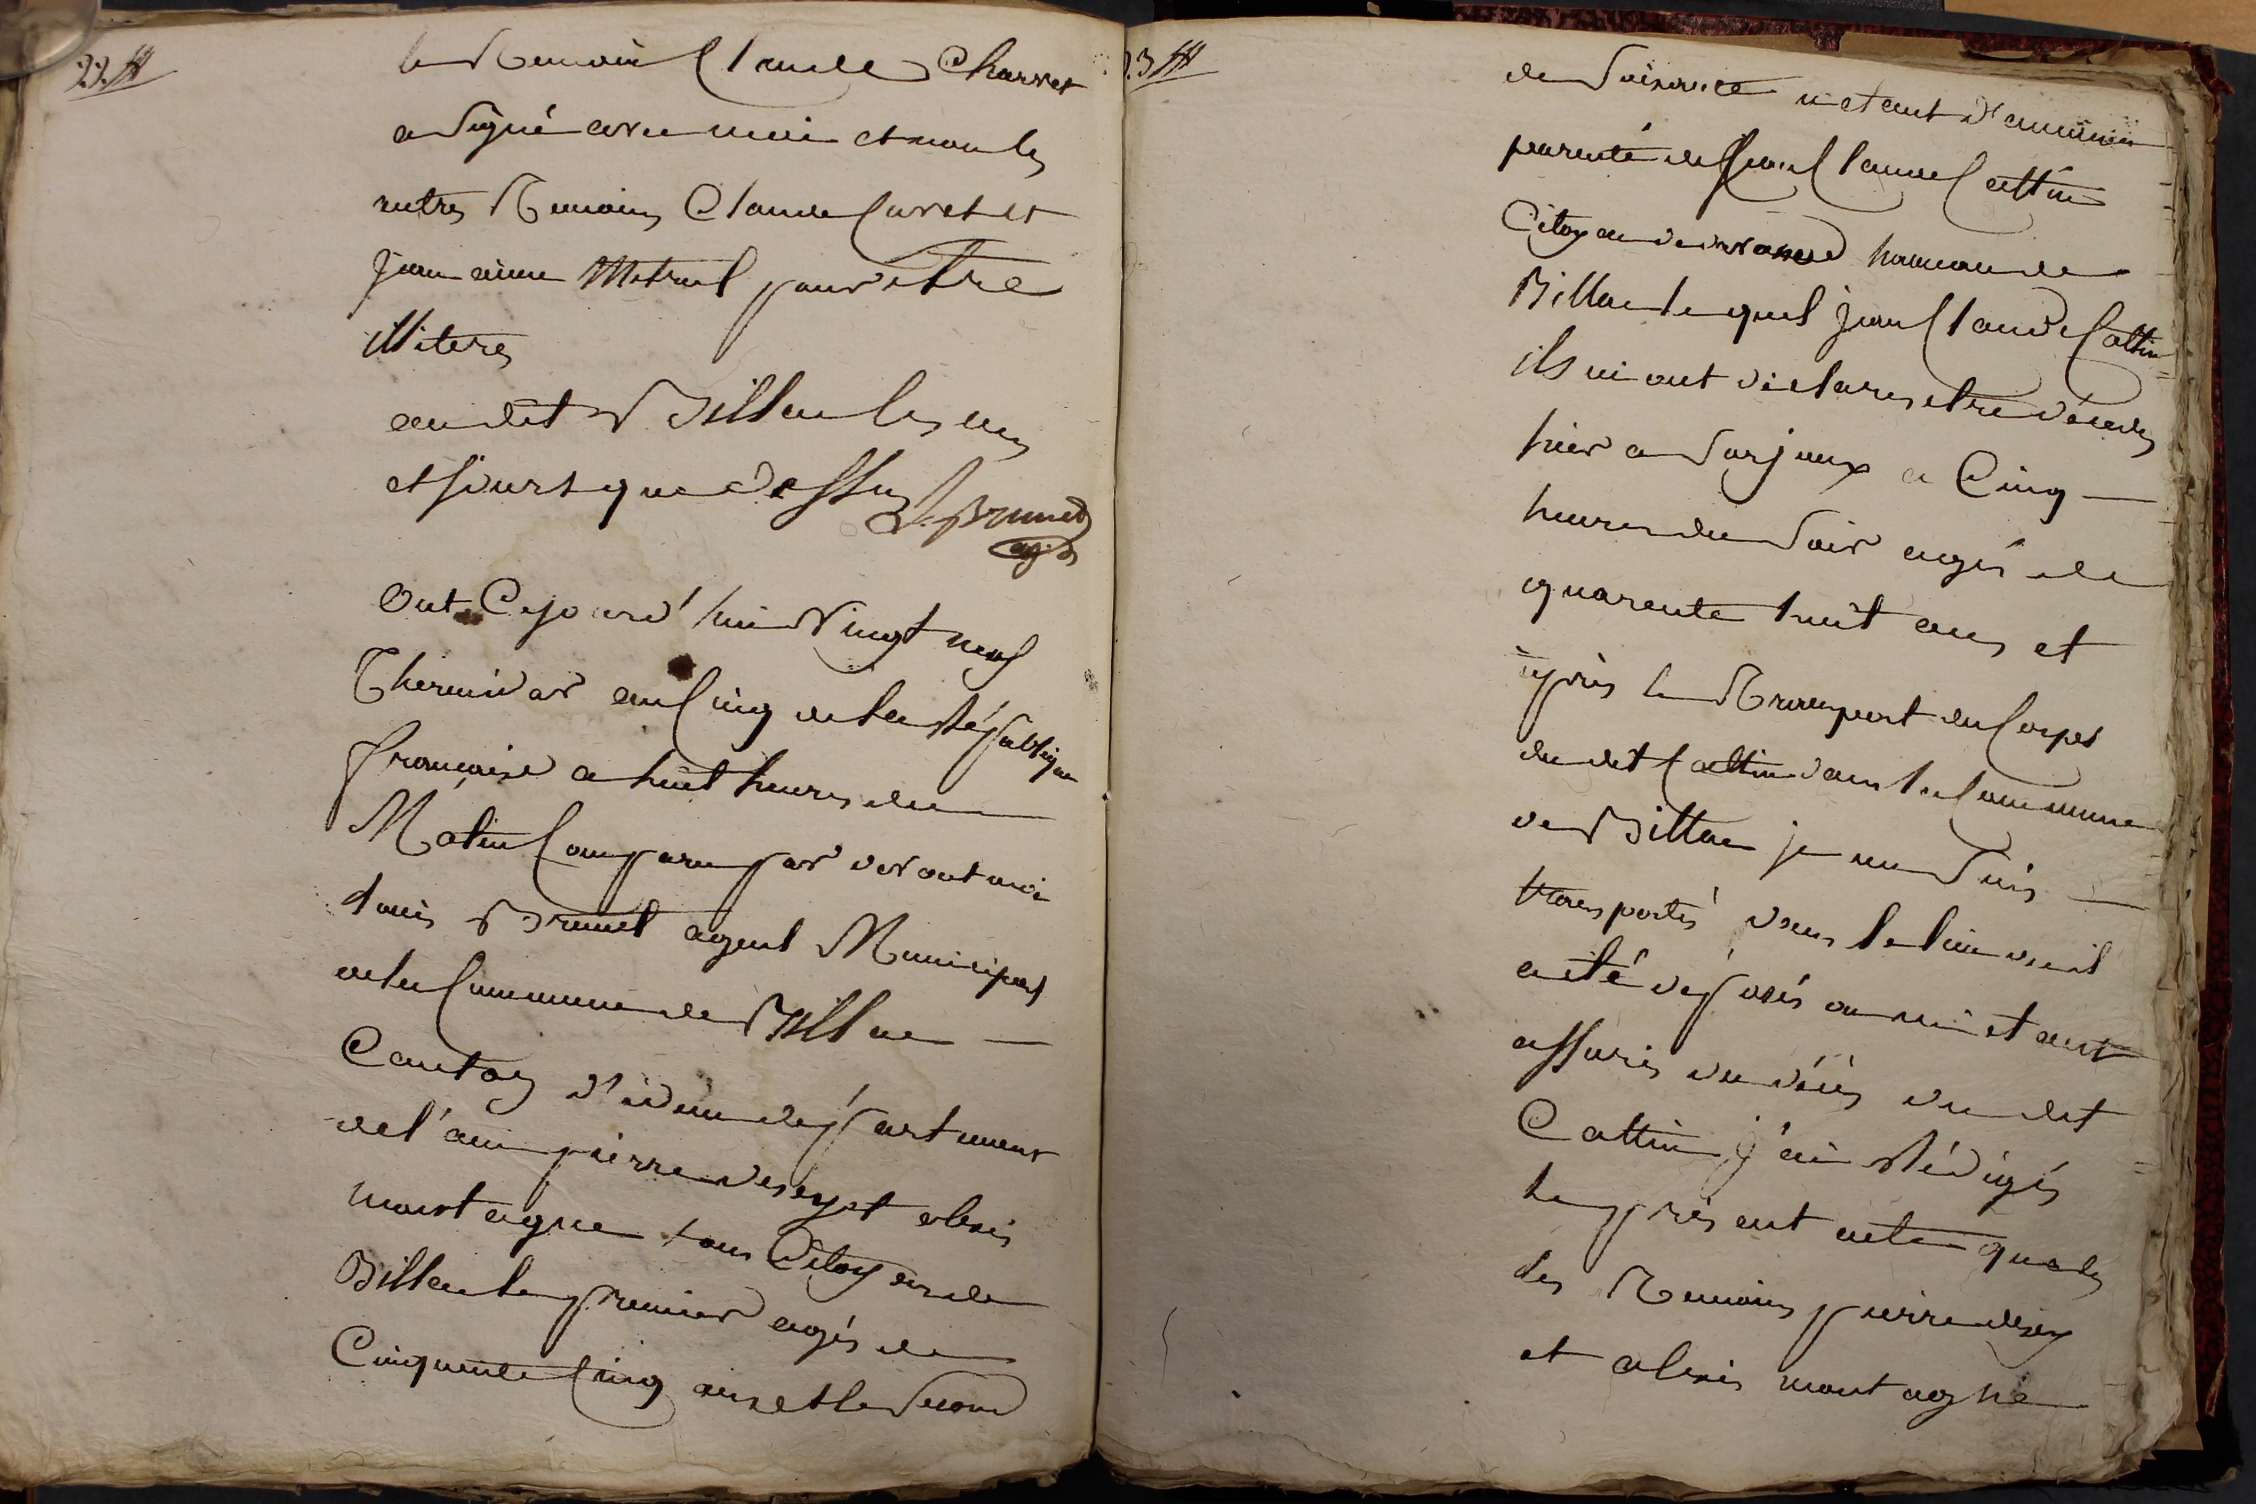 22.
le Temoin Claude Charvet
a Signé avec moi et non les
autres Temoins Claude Curvet et
jean aimé Metral pour etre
illiteres
au dit Billiat les ans
et jours que dessus L. Brunet
ag. m
Ont Cejourd'hui Vingt neuf
Thermidor an Cinq de la République
française a huit heures du
Matin Comparu par devant moi
Louis Brunet agent Municipal
de la Commune de Billiat
Canton d' département
de l'ain pierre desey et alexis
montagne tous Citoyens de
Billiat le premier agés de
Cinquante Cinq ans et le Second
23
de Soixante n'etant d'aucune
parenté de jean Claude Cattin
Citoyen de hameau de
Billiat lequel jean Claude Cattin
ils m'ont déclarés etre décédés
hier a Surjoux a Cinq
heures du Soir agés de
quarante huit ans et
après le Transport du Corps
du dit Cattin dans la Commune
de Billiat je me Suis
transportés dans le lieu ou il
a été déposés ou m'etant
assurés du décès du dit
Cattin j'ai Rédigés
le présent acte que les
les Temoins pierre desey
et alexis montagne